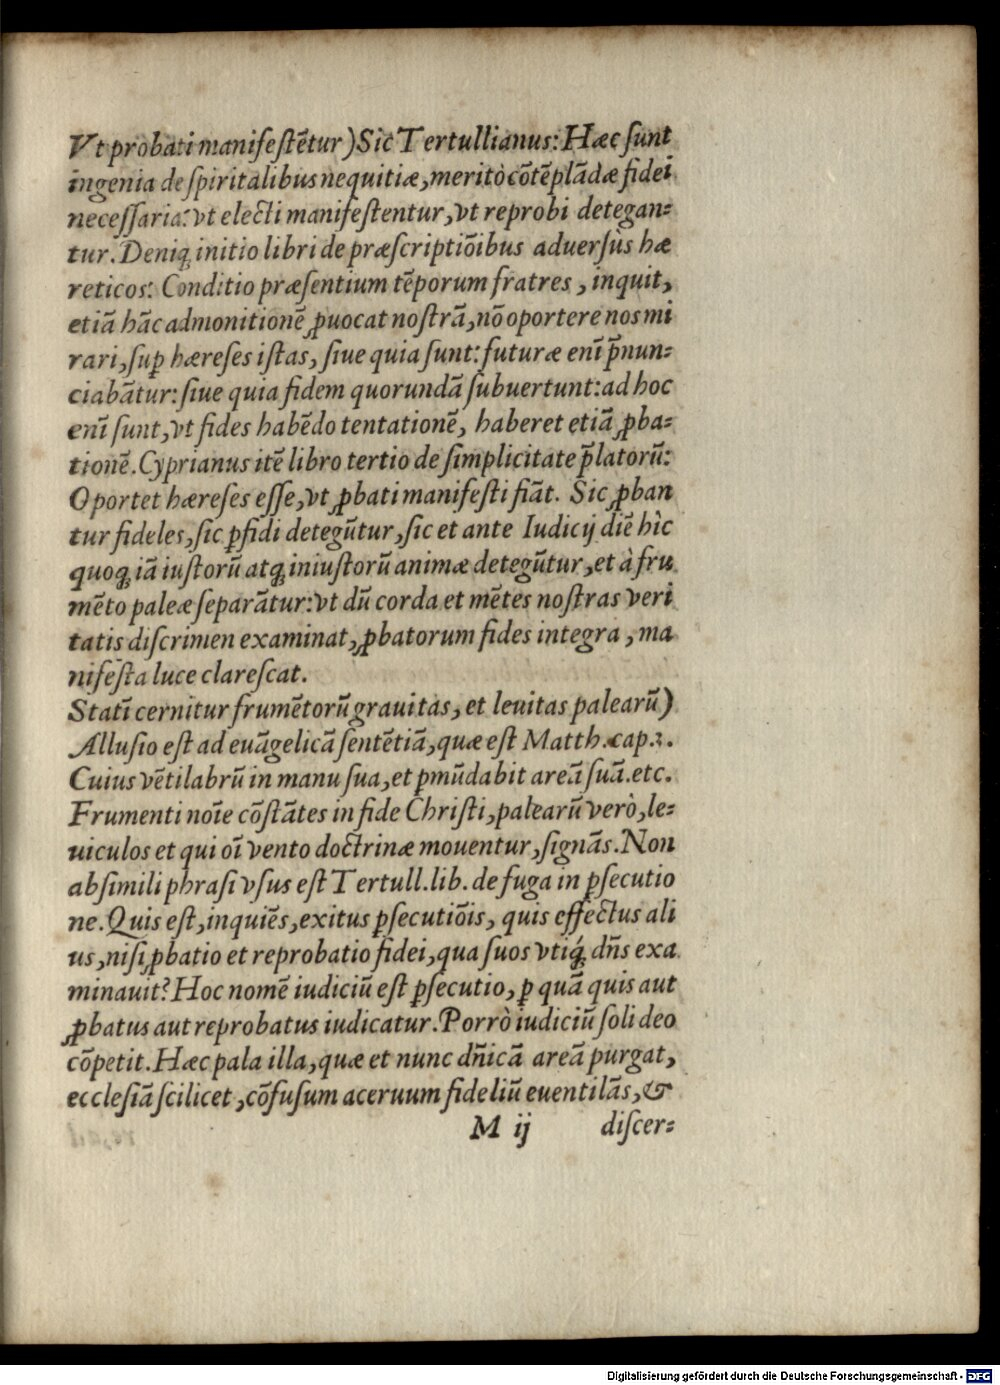 Vt probati manifestẽtur) Sic Tertullianus: Hæc sunt
ingenia de spiritalibus nequitiæ, meritò cõtẽplãdæ fidei
necessaria: vt electi manifestentur, vt reprobi detegan-
tur. Deniq; initio libri de præscriptiõibus aduersùs hæ
reticos: Conditio præsentium tẽporum fratres, inquit,
etiã hãc admonitionẽ ꝓuocat nostrã, nõ oportere nos mi
rari, suꝑ hæreses istas, siue quia sunt: futuræ enĩ p̃nun-
ciabãtur: siue quia fidem quorundã subuertunt: ad hoc
enĩ sunt, vt fides habẽdo tentationẽ, haberet etiã ꝓba-
tionẽ. Cyprianus itẽ libro tertio de simplicitate p̃latorũ:
Oportet hæreses esse, vt ꝓbati manifesti fiãt. Sic ꝓban
tur fideles, sic ꝑfidi detegũtur, sic et ante Iudicij diẽ hìc
quoq; iã iustorũ atq; iniustorũ animæ detegũtur, et à fru
mẽto paleæ separãtur: vt dũ corda et mẽtes nostras veri
tatis discrimen examinat, ꝓbatorum fides integra, ma
nifesta luce clarescat.
Statĩ cernitur frumẽtorũ grauitas, et leuitas palearũ)
Allusio est ad euãgelicã sentẽtiã, quæ est Matth. cap. 3.
Cuius vẽtilabrũ in manu sua, et ꝑmũdabit areã suã. etc.
Frumenti noĩe cõstãtes in fide Christi, palearũ verò, le-
uiculos et qui oĩ vento doctrinæ mouentur, signãs. Non
absimili phrasi vsus est Tertull. lib. de fuga in ꝑsecutio
ne. Quis est, inquiẽs, exitus ꝑsecutiõis, quis effectus ali
us, nisi ꝓbatio et reprobatio fidei, qua suos vtiq́; dñs exa
minauit? Hoc nomẽ iudiciũ est ꝑsecutio, ꝑ quã quis aut
ꝓbatus aut reprobatus iudicatur. Porrò iudiciũ soli deo
cõpetit. Hæc pala illa, quæ et nunc dñicã areã purgat,
ecclesiã scilicet, cõfusum aceruum fideliũ euentilãs, &
M ij discer-
Digitalisierung gefördert durch die Deutsche Forschungsgemeinschaft - DFG